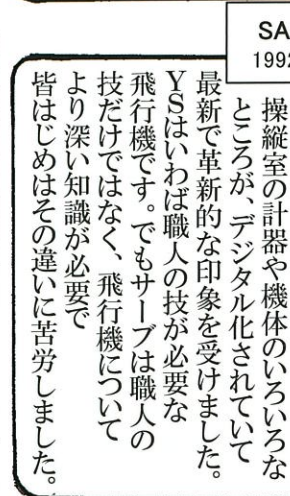 SA
1992
操縦室の計器や機体のいろいろな
ところが、デジタル化されていて
最新で革新的な印象を受けました。
YSはいわば職人の技が必要な
飛行機です。でもサーブは職人の
技だけではなく、飛行機について
より深い知識が必要で
皆はじめはその違いに苦労しました。